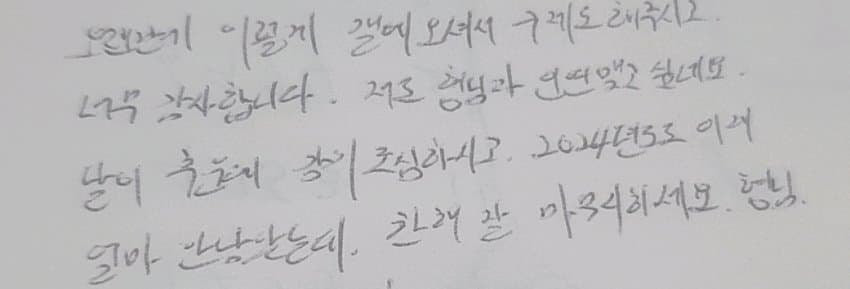 오랜만에 이렇게 갤에 오셔서 구제도 해주시고.
너무 감사합니다. 저도 형님과 인연맺고 싶네요.
날이 추운데 감기 조심하시고. 2024년도도 이제
얼마 안남았는데. 한해 잘 마무리하세요. 형님.